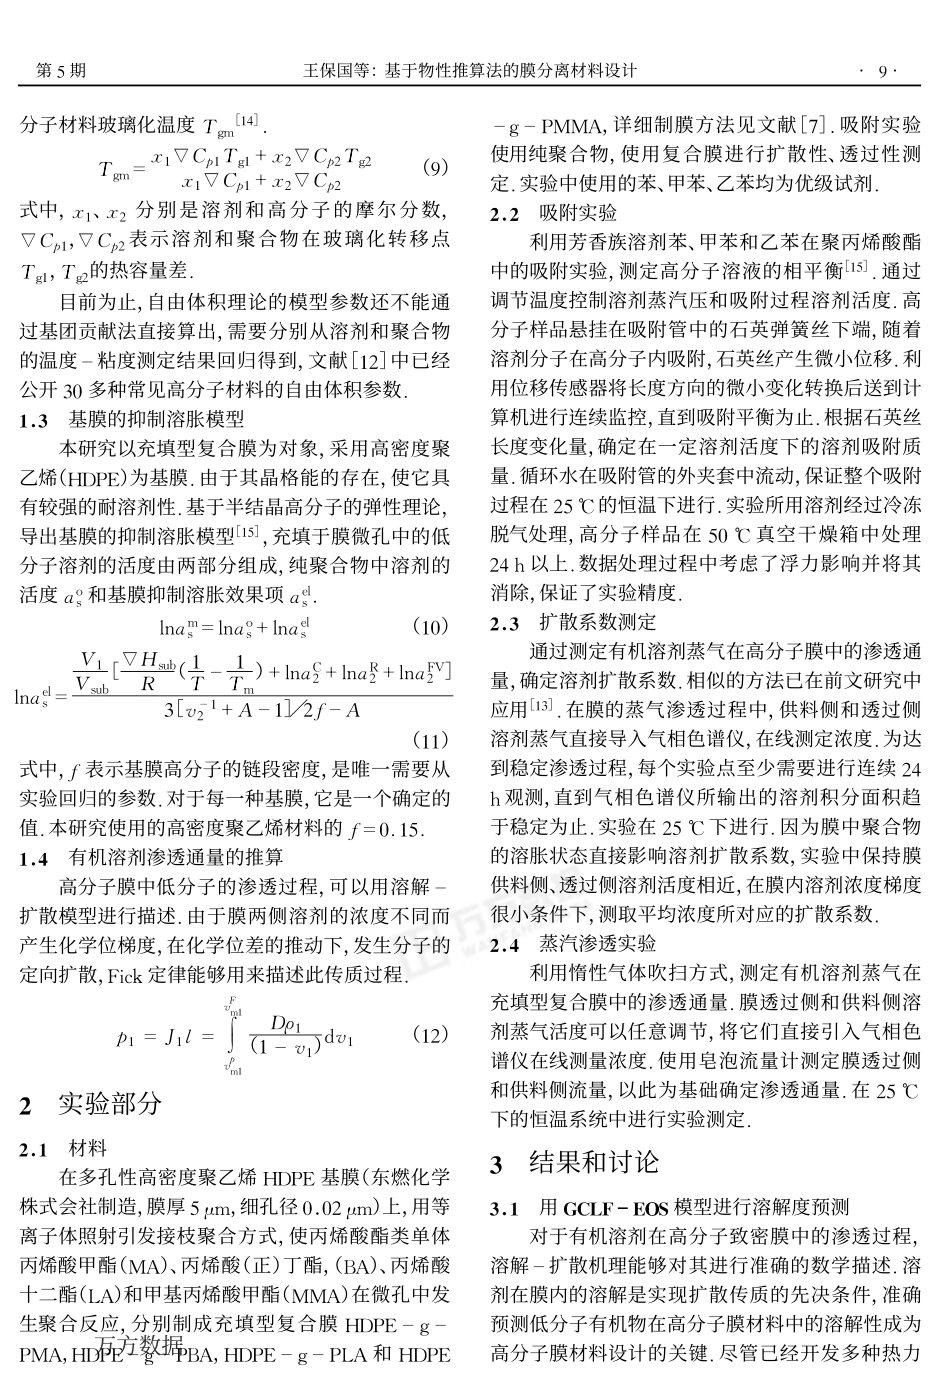 第 5 期
王保国等: 基于物性推算法的膜分离材料设计
· 9 ·
分子材料玻璃化温度 Tgm[14].
Tgm = x1▽Cp1Tg1 + x2▽Cp2Tg2 / x1▽Cp1 + x2▽Cp2 (9)
式中, x1、x2 分别是溶剂和高分子的摩尔分数,
▽Cp1, ▽Cp2表示溶剂和聚合物在玻璃化转移点
Tg1, Tg2的热容量差.
目前为止, 自由体积理论的模型参数还不能通
过基团贡献法直接算出, 需要分别从溶剂和聚合物
的温度－粘度测定结果回归得到, 文献[12]中已经
公开 30 多种常见高分子材料的自由体积参数.
1.3 基膜的抑制溶胀模型
本研究以充填型复合膜为对象, 采用高密度聚
乙烯(HDPE)为基膜. 由于其晶格能的存在, 使它具
有较强的耐溶剂性. 基于半结晶高分子的弹性理论,
导出基膜的抑制溶胀模型[15], 充填于膜微孔中的低
分子溶剂的活度由两部分组成, 纯聚合物中溶剂的
活度 a_s^o 和基膜抑制溶胀效果项 a_s^el.
lna_s^m = lna_s^o + lna_s^el (10)
lna_s^el = V1/Vsub [▽Hsub/R (1/T − 1/Tm) + lna_2^C + lna_2^R + lna_2^FV] / 3[v_2^-1 + A − 1]/2f − A
(11)
式中, f 表示基膜高分子的链段密度, 是唯一需要从
实验回归的参数. 对于每一种基膜, 它是一个确定的
值. 本研究使用的高密度聚乙烯材料的 f = 0.15.
1.4 有机溶剂渗透通量的推算
高分子膜中低分子的渗透过程, 可以用溶解－
扩散模型进行描述. 由于膜两侧溶剂的浓度不同而
产生化学位梯度, 在化学位差的推动下, 发生分子的
定向扩散, Fick 定律能够用来描述此传质过程.
p1 = J1l = ∫_{v_m1^p}^{v_m1^F} Dρ1/(1 − v1) dv1 (12)
2 实验部分
2.1 材料
在多孔性高密度聚乙烯 HDPE 基膜(东燃化学
株式会社制造, 膜厚 5 μm, 细孔径 0.02 μm)上, 用等
离子体照射引发接枝聚合方式, 使丙烯酸酯类单体
丙烯酸甲酯(MA)、丙烯酸(正)丁酯, (BA)、丙烯酸
十二酯(LA)和甲基丙烯酸甲酯(MMA)在微孔中发
生聚合反应, 分别制成充填型复合膜 HDPE－g－
PMA, HDPE－g－PBA, HDPE－g－PLA 和 HDPE
万方数据
－g－PMMA, 详细制膜方法见文献[7]. 吸附实验
使用纯聚合物, 使用复合膜进行扩散性、透过性测
定. 实验中使用的苯、甲苯、乙苯均为优级试剂.
2.2 吸附实验
利用芳香族溶剂苯、甲苯和乙苯在聚丙烯酸酯
中的吸附实验, 测定高分子溶液的相平衡[15]. 通过
调节温度控制溶剂蒸汽压和吸附过程溶剂活度. 高
分子样品悬挂在吸附管中的石英弹簧丝下端, 随着
溶剂分子在高分子内吸附, 石英丝产生微小位移. 利
用位移传感器将长度方向的微小变化转换后送到计
算机进行连续监控, 直到吸附平衡为止. 根据石英丝
长度变化量, 确定在一定溶剂活度下的溶剂吸附质
量. 循环水在吸附管的外夹套中流动, 保证整个吸附
过程在 25 ℃的恒温下进行. 实验所用溶剂经过冷冻
脱气处理, 高分子样品在 50 ℃ 真空干燥箱中处理
24 h 以上. 数据处理过程中考虑了浮力影响并将其
消除, 保证了实验精度.
2.3 扩散系数测定
通过测定有机溶剂蒸气在高分子膜中的渗透通
量, 确定溶剂扩散系数. 相似的方法已在前文研究中
应用[13]. 在膜的蒸气渗透过程中, 供料侧和透过侧
溶剂蒸气直接导入气相色谱仪, 在线测定浓度. 为达
到稳定渗透过程, 每个实验点至少需要进行连续 24
h 观测, 直到气相色谱仪所输出的溶剂积分面积趋
于稳定为止. 实验在 25 ℃ 下进行. 因为膜中聚合物
的溶胀状态直接影响溶剂扩散系数, 实验中保持膜
供料侧、透过侧溶剂活度相近, 在膜内溶剂浓度梯度
很小条件下, 测取平均浓度所对应的扩散系数.
2.4 蒸汽渗透实验
利用惰性气体吹扫方式, 测定有机溶剂蒸气在
充填型复合膜中的渗透通量. 膜透过侧和供料侧溶
剂蒸气活度可以任意调节, 将它们直接引入气相色
谱仪在线测量浓度. 使用皂泡流量计测定膜透过侧
和供料侧流量, 以此为基础确定渗透通量. 在 25 ℃
下的恒温系统中进行实验测定.
3 结果和讨论
3.1 用 GCLF－EOS 模型进行溶解度预测
对于有机溶剂在高分子致密膜中的渗透过程,
溶解－扩散机理能够对其进行准确的数学描述. 溶
剂在膜内的溶解是实现扩散传质的先决条件, 准确
预测低分子有机物在高分子膜材料中的溶解性成为
高分子膜材料设计的关键. 尽管已经开发多种热力